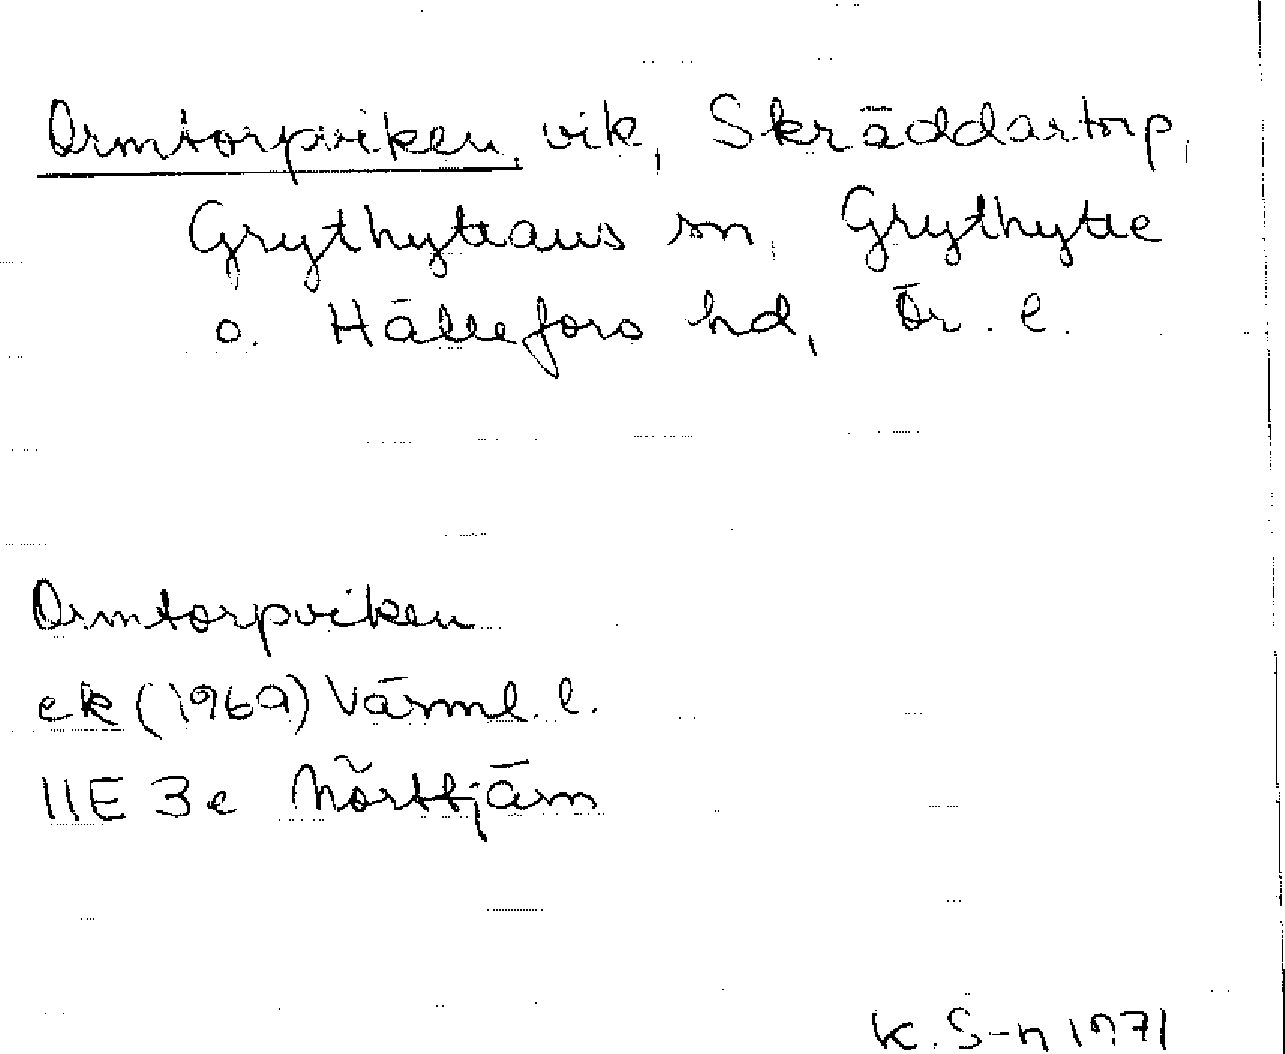 Ormtorpviken, vik, Skräddartorp,
Grythyttans sn, Grythytte
o. Hällefors hd, Ör. l.
Ormtorpviken
ek (1969) Värml. l.
11E 3e Mörttjärn
K. S-n 1971